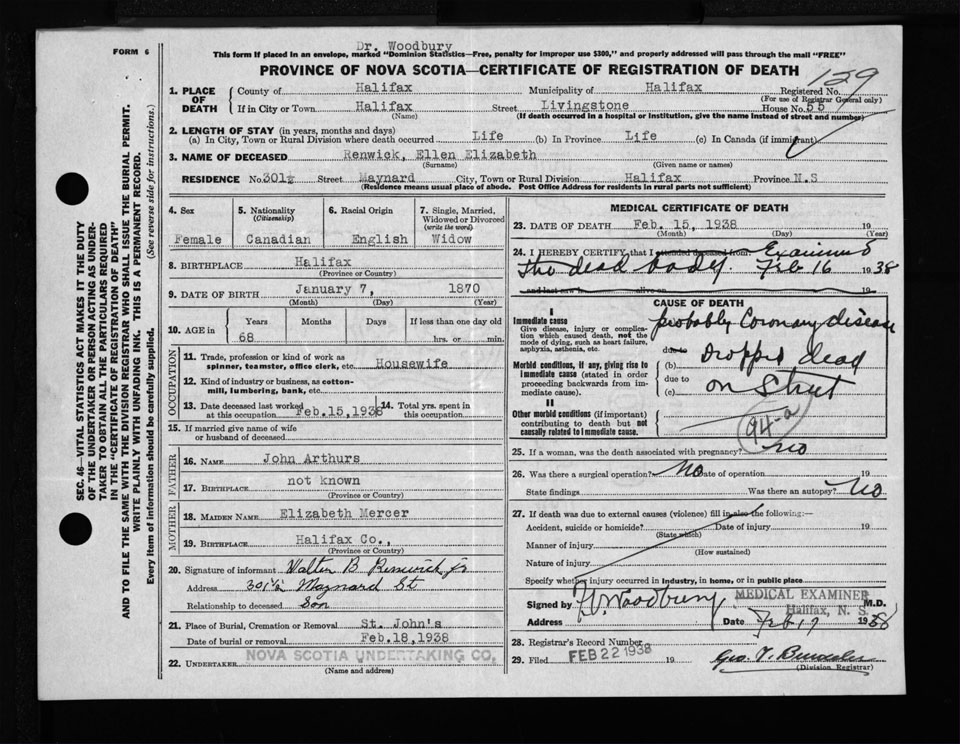 FORM 6
Dr. Woodbury
This form if placed in an envelope, marked "Dominion Statistics—Free, penalty for improper use $300," and properly addressed will pass through the mail "FREE"
PROVINCE OF NOVA SCOTIA—CERTIFICATE OF REGISTRATION OF DEATH
129
1. PLACE OF DEATH
County of Halifax Municipality of Halifax Registered No.
(For use of Registrar General only)
If in City or Town Halifax Street Livingstone House No. 55
(Name) (If death occurred in a hospital or institution, give the name instead of street and number)
2. LENGTH OF STAY (in years, months and days)
(a) In City, Town or Rural Division where death occurred Life (b) In Province Life (c) In Canada (if immigrant)
3. NAME OF DECEASED Renwick, Ellen Elizabeth
(Surname) (Given name or names)
RESIDENCE No. 301½ Street Maynard City, Town or Rural Division Halifax Province N.S
(Residence means usual place of abode. Post Office Address for residents in rural parts not sufficient)
4. Sex 5. Nationality (Citizenship) 6. Racial Origin 7. Single, Married, Widowed or Divorced (write the word)
Female Canadian English Widow
8. BIRTHPLACE Halifax
(Province or Country)
9. DATE OF BIRTH January 7, 1870
(Month) (Day) (Year)
10. AGE in Years Months Days If less than one day old
68 hrs. or min.
OCCUPATION
11. Trade, profession or kind of work as spinner, teamster, office clerk, etc. Housewife
12. Kind of industry or business, as cotton-mill, lumbering, bank, etc.
13. Date deceased last worked at this occupation Feb.15,1938 14. Total yrs. spent in this occupation
15. If married give name of wife or husband of deceased
FATHER
16. NAME John Arthurs
17. BIRTHPLACE not known
(Province or Country)
MOTHER
18. MAIDEN NAME Elizabeth Mercer
19. BIRTHPLACE Halifax Co.,
(Province or Country)
20. Signature of informant Walter B Renwick jr
Address 301½ Maynard St
Relationship to deceased Son
21. Place of Burial, Cremation or Removal St. John's
Date of burial or removal Feb.18,1938
22. UNDERTAKER NOVA SCOTIA UNDERTAKING CO.
(Name and address)
MEDICAL CERTIFICATE OF DEATH
23. DATE OF DEATH Feb. 15, 1938 19
(Month) (Day) (Year)
24. I HEREBY CERTIFY that I attended deceased from: Examined
the dead body. Feb 16 1938
and last saw h alive on 19
CAUSE OF DEATH
I
Immediate cause
Give disease, injury or complication which caused death, not the mode of dying, such as heart failure, asphyxia, asthenia, etc.
probably Coronary disease
due to
Morbid conditions, if any, giving rise to immediate cause (stated in order proceeding backwards from immediate cause).
(b) Dropped dead
due to
(c) on Street
II
Other morbid conditions (if important) contributing to death but not causally related to immediate cause.
94-a
25. If a woman, was the death associated with pregnancy? no
26. Was there a surgical operation? No Date of operation 19
State findings Was there an autopsy? No
27. If death was due to external causes (violence) fill in also the following:—
Accident, suicide or homicide? Date of injury 19
(State which)
Manner of injury
(How sustained)
Nature of injury
Specify whether injury occurred in industry, in home, or in public place
Signed by Woodbury MEDICAL EXAMINER M.D.
Halifax, N. S.
Address Date Feb 17 1938
28. Registrar's Record Number
29. Filed FEB 22 1938 19
(Division Registrar)
SEC. 46—VITAL STATISTICS ACT MAKES IT THE DUTY
OF THE UNDERTAKER OR PERSON ACTING AS UNDER-
TAKER TO OBTAIN ALL THE PARTICULARS REQUIRED
IN THE "CERTIFICATE OF REGISTRATION OF DEATH"
AND TO FILE THE SAME WITH THE DIVISION REGISTRAR WHO SHALL ISSUE THE BURIAL PERMIT.
WRITE PLAINLY WITH UNFADING INK. THIS IS A PERMANENT RECORD.
Every item of information should be carefully supplied. (See reverse side for instructions.)